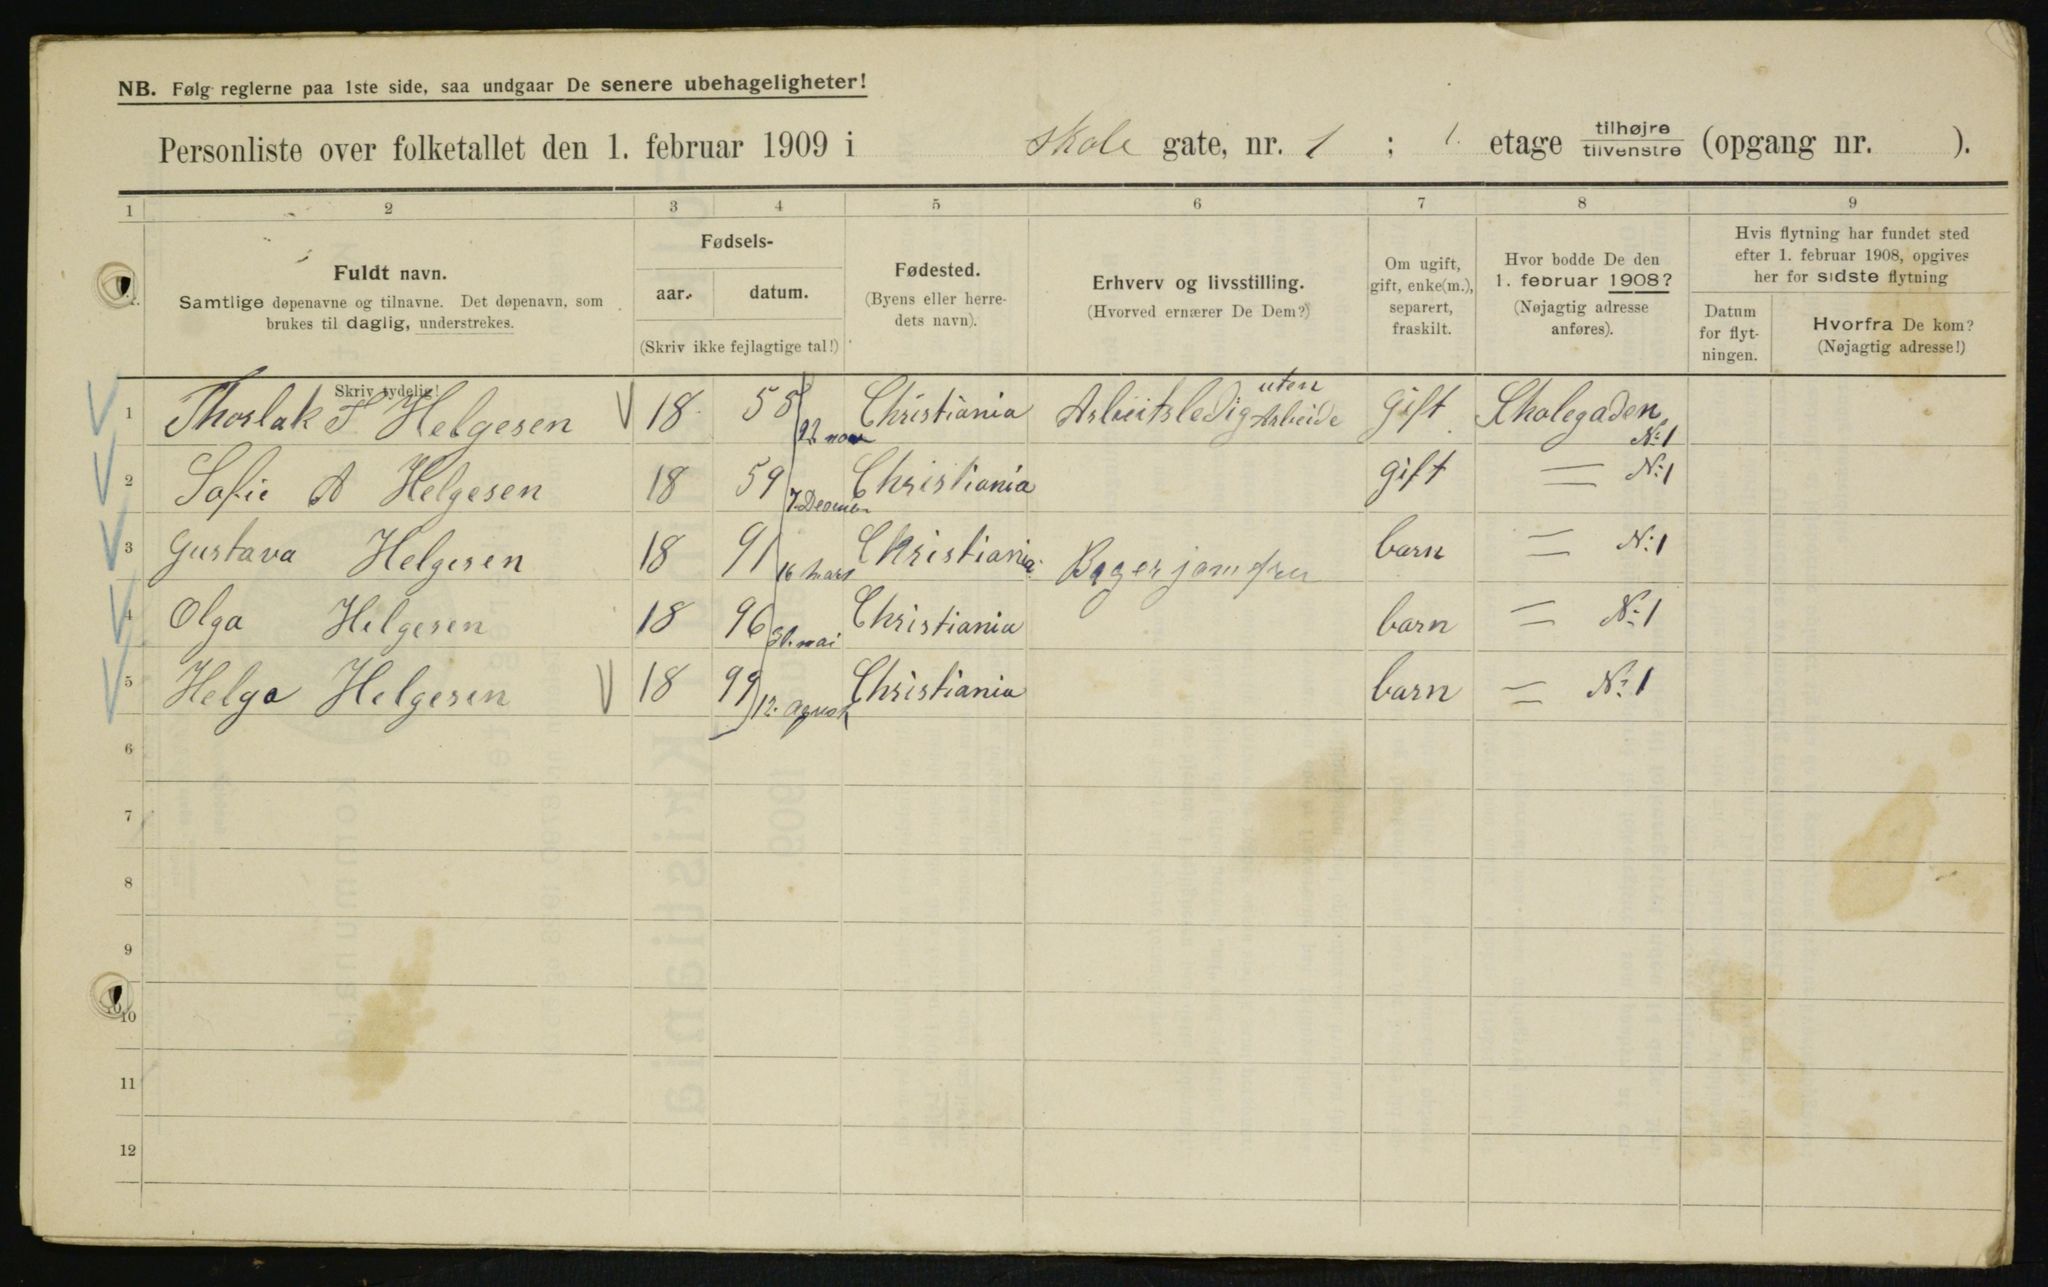 NB. Følg reglerne paa 1ste side, saa undgaar De senere ubehageligheter!
Personliste over folketallet den 1. februar 1909 i Skole gate, nr. 1 ; 1. etage tilhøjre tilvenstre (opgang nr. ).
1 2 3 4 5 6 7 8 9
Fuldt navn.
Samtlige døpenavne og tilnavne. Det døpenavn, som
brukes til daglig, understrekes.
Skriv tydelig!
Fødsels-
aar. datum.
(Skriv ikke fejlagtige tal!)
Fødested.
(Byens eller herre-
dets navn).
Erhverv og livsstilling.
(Hvorved ernærer De Dem?)
Om ugift,
gift, enke(m.),
separert,
fraskilt.
Hvor bodde De den
1. februar 1908?
(Nøjagtig adresse
anføres).
Hvis flytning har fundet sted
efter 1. februar 1908, opgives
her for sidste flytning
Datum
for flyt-
ningen.
Hvorfra De kom?
(Nøjagtig adresse!)
1 Thorlak F Helgesen 18 58 22 nov Christiania Arbeitsledig uten Arbeide gift Skolegaden No 1
2 Sofie A Helgesen 18 59 7 Christiania gift = No 1
3 Gustava Helgesen 18 91 16 mars Christiania Bagerjomfru barn = No 1
4 Olga Helgesen 18 96 mai Christiania barn = No 1
5 Helga Helgesen 18 99 12. Agust Christiania barn = No 1
6
7
8
9
10
11
12